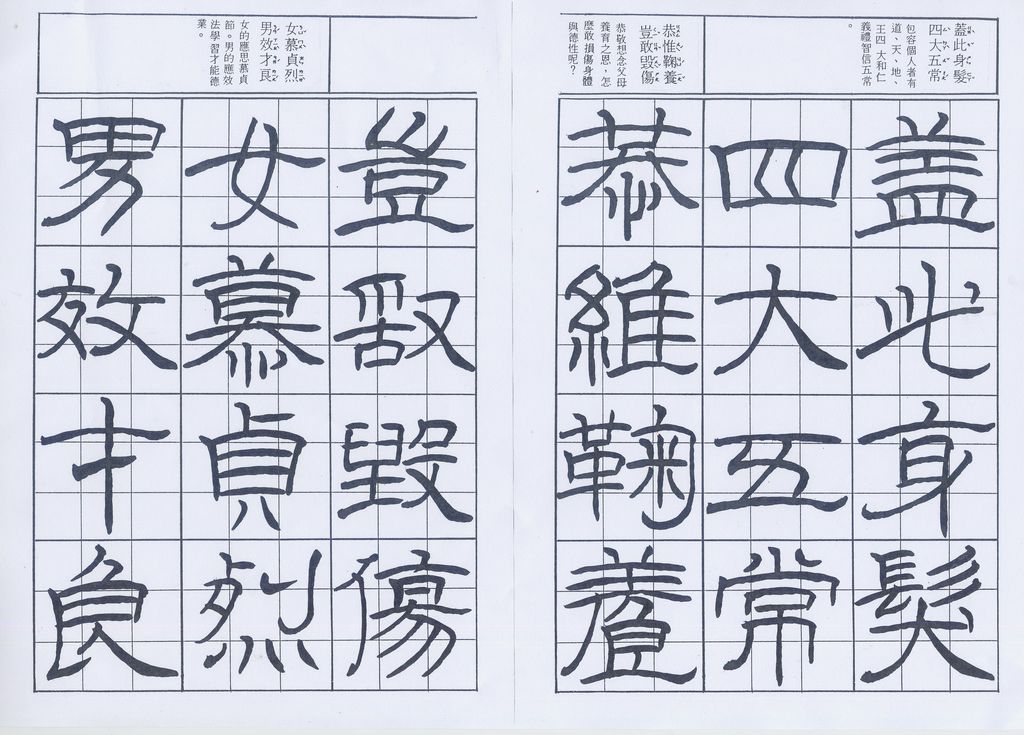 蓋此身髮
四大五常
包容個人者有
道、天、地、
王四大和仁
義禮智信五常
。
恭惟鞠養
豈敢毀傷
恭敬想念父母
養育之恩，怎
麼敢損傷身體
與德性呢？
女慕貞烈
男效才良
女的應思慕貞
節。男的應效
法學習才能德
業。
盖此身髮
四大五常
恭維鞠養
豈敢毀傷
女慕貞烈
男效才良